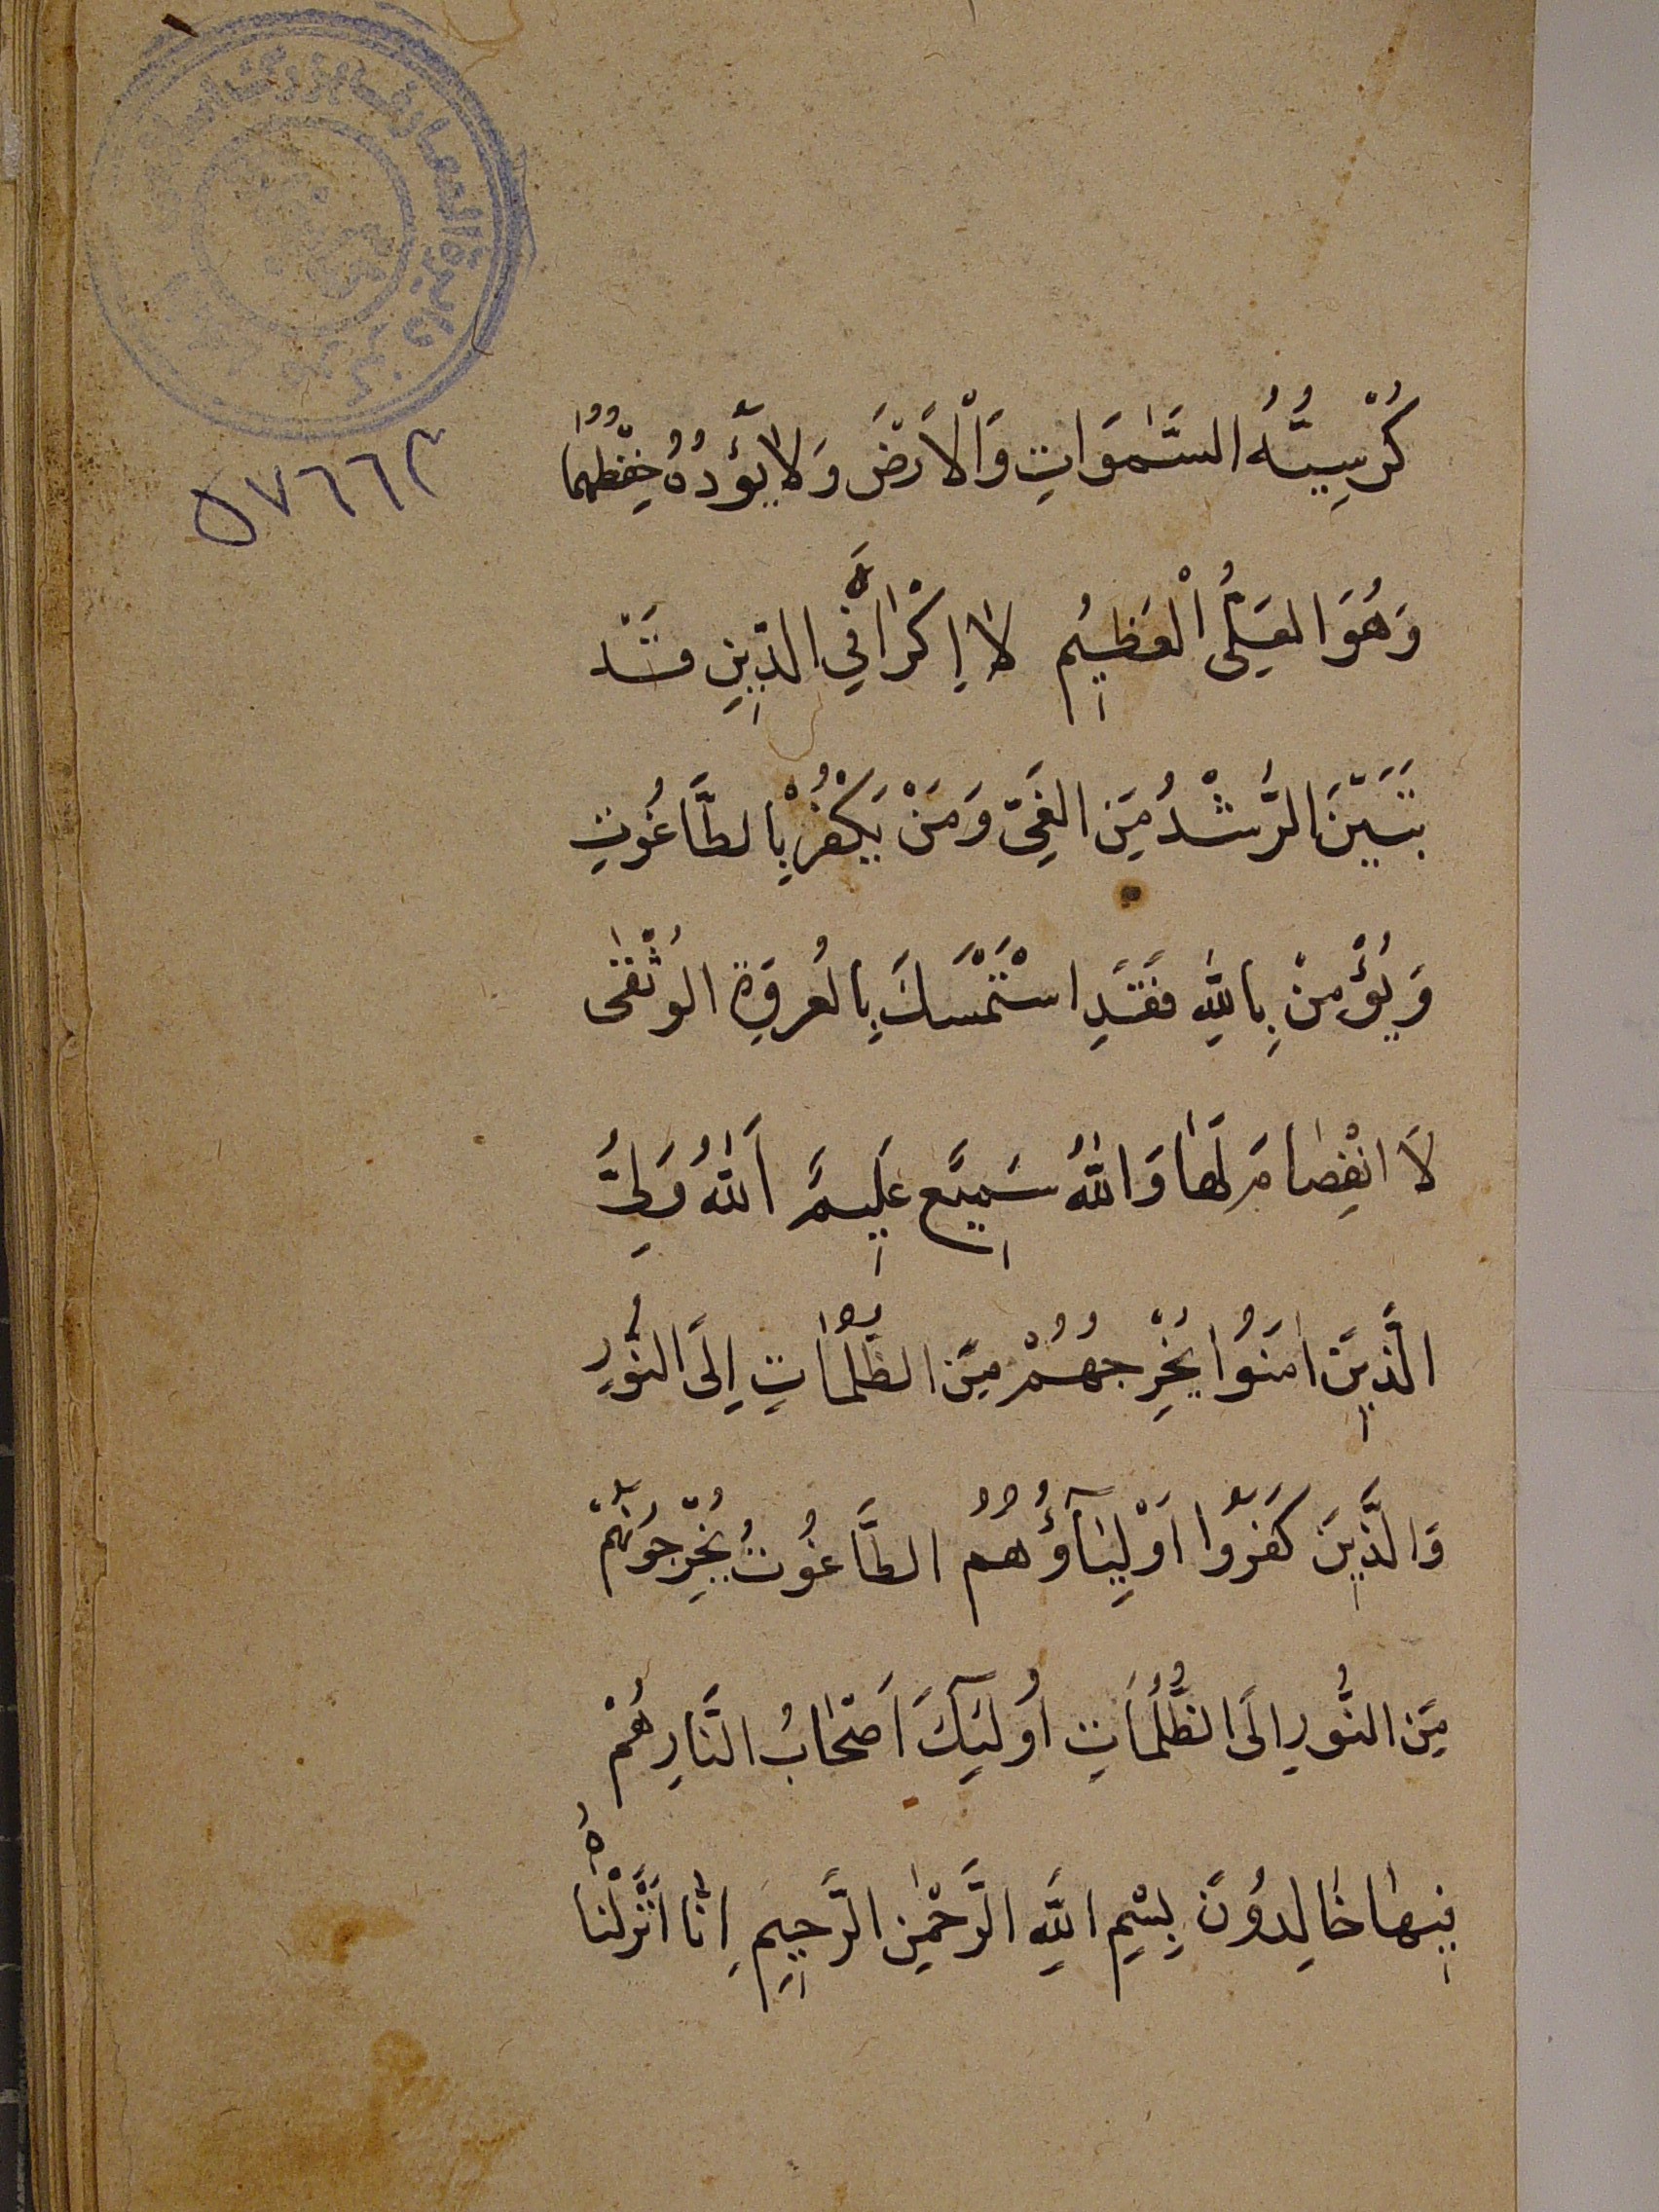 ٥٧٦٦٢
كُرْسِيُّهُ السَّمٰوَاتِ وَالْاَرْضَ وَلَا يَؤُدُهُ حِفْظُهُمٰا
وَهُوَ العَلِىُّ الْعَظِيمُ لاٰ اِكْرٰاهَ فِي الدِّينِ قَدْ
تَبَيَّنَ الرُّشْدُ مِنَ الغَىِّ وَمَنْ يَكْفُرْ بِالطَّاغُوتِ
وَيُؤْمِنْ بِاللّٰهِ فَقَدِ اسْتَمْسَكَ بِالعُروَةِ الوُثْقىٰ
لاَ انْفِصٰامَ لَهٰا وَاللّٰهُ سَمِيعٌ عَلِيمٌ اَللّٰهُ وَلِىُّ
الَّذِينَ اٰمَنُوا يُخْرِجُهُمْ مِنَ الظُّلُمٰاتِ اِلَى النُّورِ
وَالَّذِينَ كَفَرُوا اَوْلِيٰآؤُهُمُ الطَّاغُوتُ يُخْرِجُونَهُمْ
مِنَ النُّورِ اِلَى الظُّلُمَاتِ اُولٰئِكَ اَصْحٰابُ النَّارِ هُمْ
فِيهٰا خٰالِدُونَ بِسْمِ اللّٰهِ الرَّحْمٰنِ الرَّحِيمِ اِنّٰا اَنْزَلْنٰاهُ